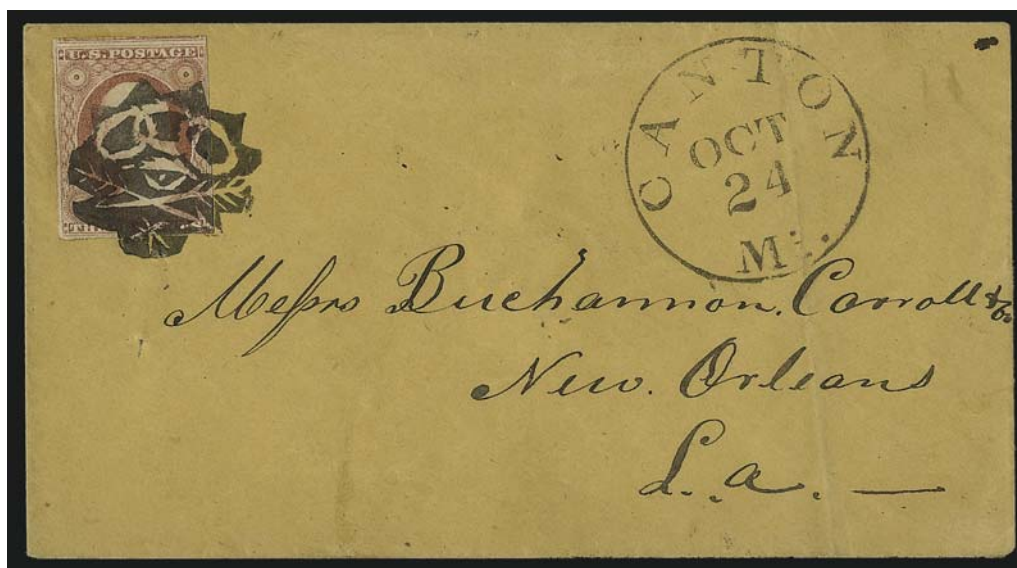 U.S. POSTAGE
CANTON
OCT
24
M
Messrs Buchannon, Carroll & Co.
New. Orleans
L.a. —